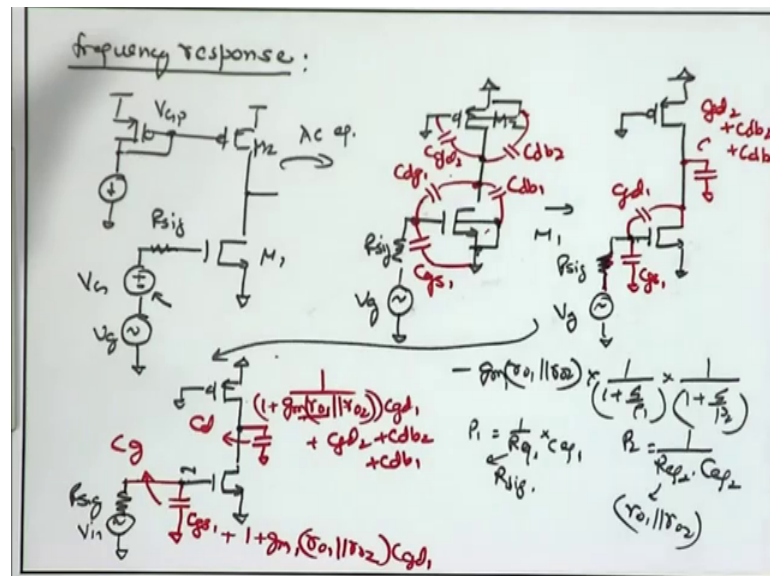 frequency response :
VGP
M2
AC eq.
Rsig
M1
VG
Vg
M2
Cgd2
Cdb2
Cdg1
Cdb1
Rsig
Cgs1
Vg
M1
gd2
+ Cdb2
+ Cdb
C
gd1
Rsig
Cgs1
Vg
1
(1 + gm(ro1 || ro2)) Cgd1
+ gd2 + Cdb2
+ Cdb1
Cd
Cg
Rsig
Vin
Cgs1 + 1 + gm1 (ro1 || ro2) Cgd1
- gm(ro1 || ro2) × 1/(1 + s/P1) × 1/(1 + s/P2)
P1 = 1/Req1 × Ceq1
Rsig.
P2 = 1/Req2 . Ceq2
(ro1 || ro2)